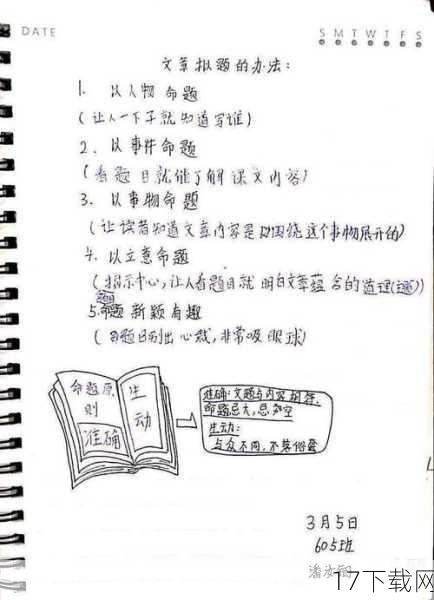 DATE
S M T W T F S
文章拟题的办法:
1. 以人物命题
(让人一下子就知道写谁)
2. 以事件命题
(看题目就能了解课文内容)
3. 以事物命题
(让读者知道文章内容是以围绕这个事物展开的)
4. 以立意命题
(揭示中心,让人看题目就明白文章蕴含的道理(主题))
5.命题新颖有趣
(命题别出心裁,非常吸眼球)
命题原则
生动
准确
准确:文题与内容相符,
命题忌大,忌空
生动:
与众不同,不落俗套
3月5日
605班
17下载网